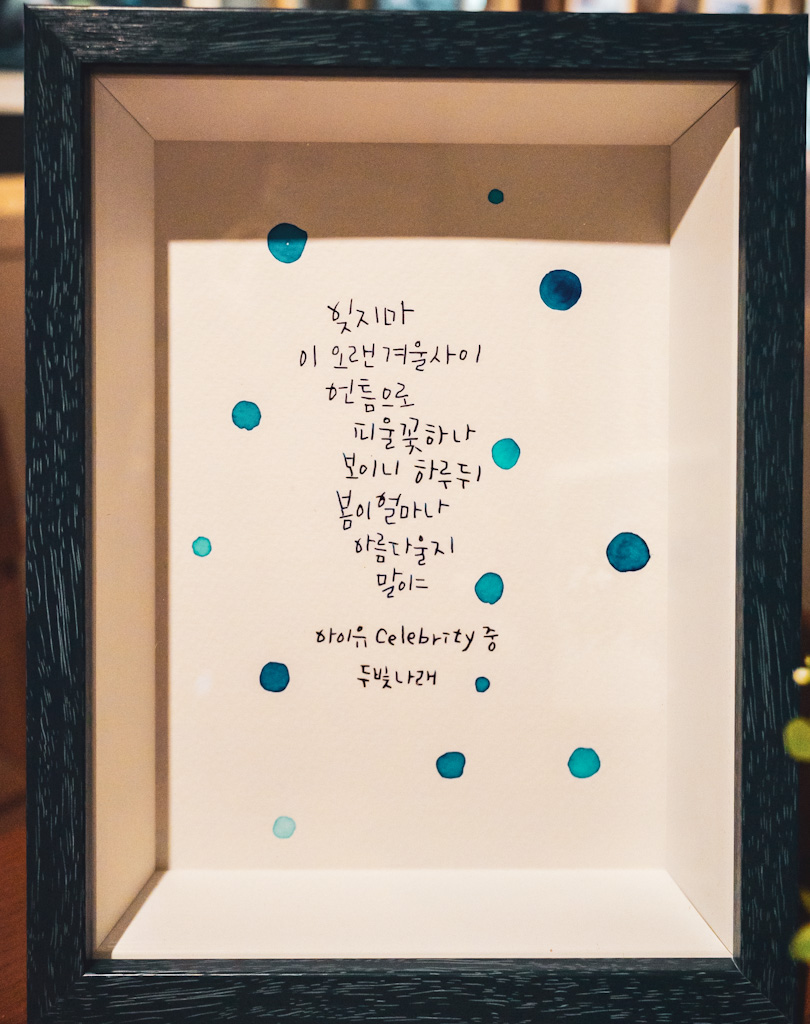 잊지마
이 오랜 겨울 사이
언 틈으로
피울 꽃 하나
보이니 하루 뒤
봄이 얼마나
아름다울지
말야
아이유 Celebrity 중
두빛나래